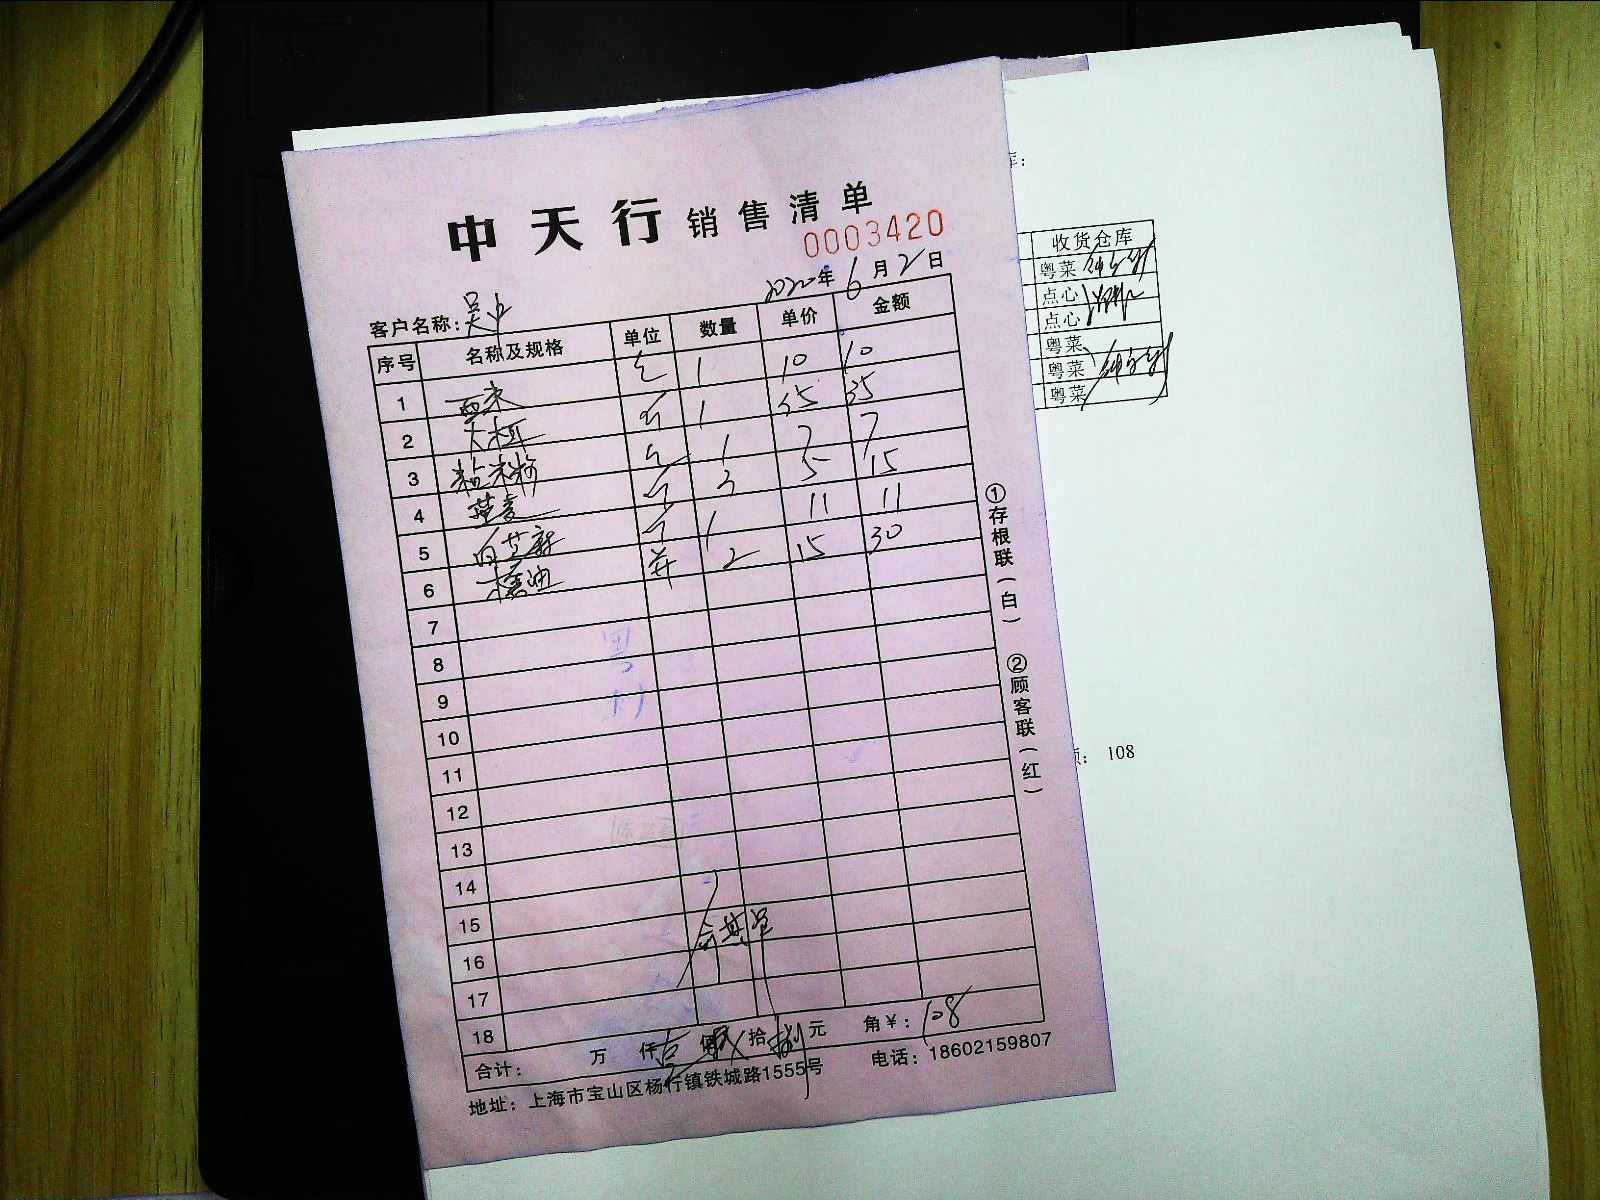 中天行 销售清单
0003420
2020年6月2日
客户名称:吴业
序号 名称及规格 单位 数量 单价 金额
1 西米 包 1 10 10
2 大木耳 斤 1 35 35
3 粘米粉 包 1 7 7
4 荞麦 斤 3 5 15
5 白芝麻 斤 1 11 11
6 桶油 并 2 15 30
7
8
9
10
11
12
13
14
15
16
17
18
合计: 万 仟 壹 佰 拾 捌 元 角 ¥:108
地址:上海市宝山区杨行镇铁城路1555号 电话:18602159807
①存根联(白)
②顾客联(红)
库:
收货仓库
粤菜
点心
点心
粤菜
粤菜
粤菜
108